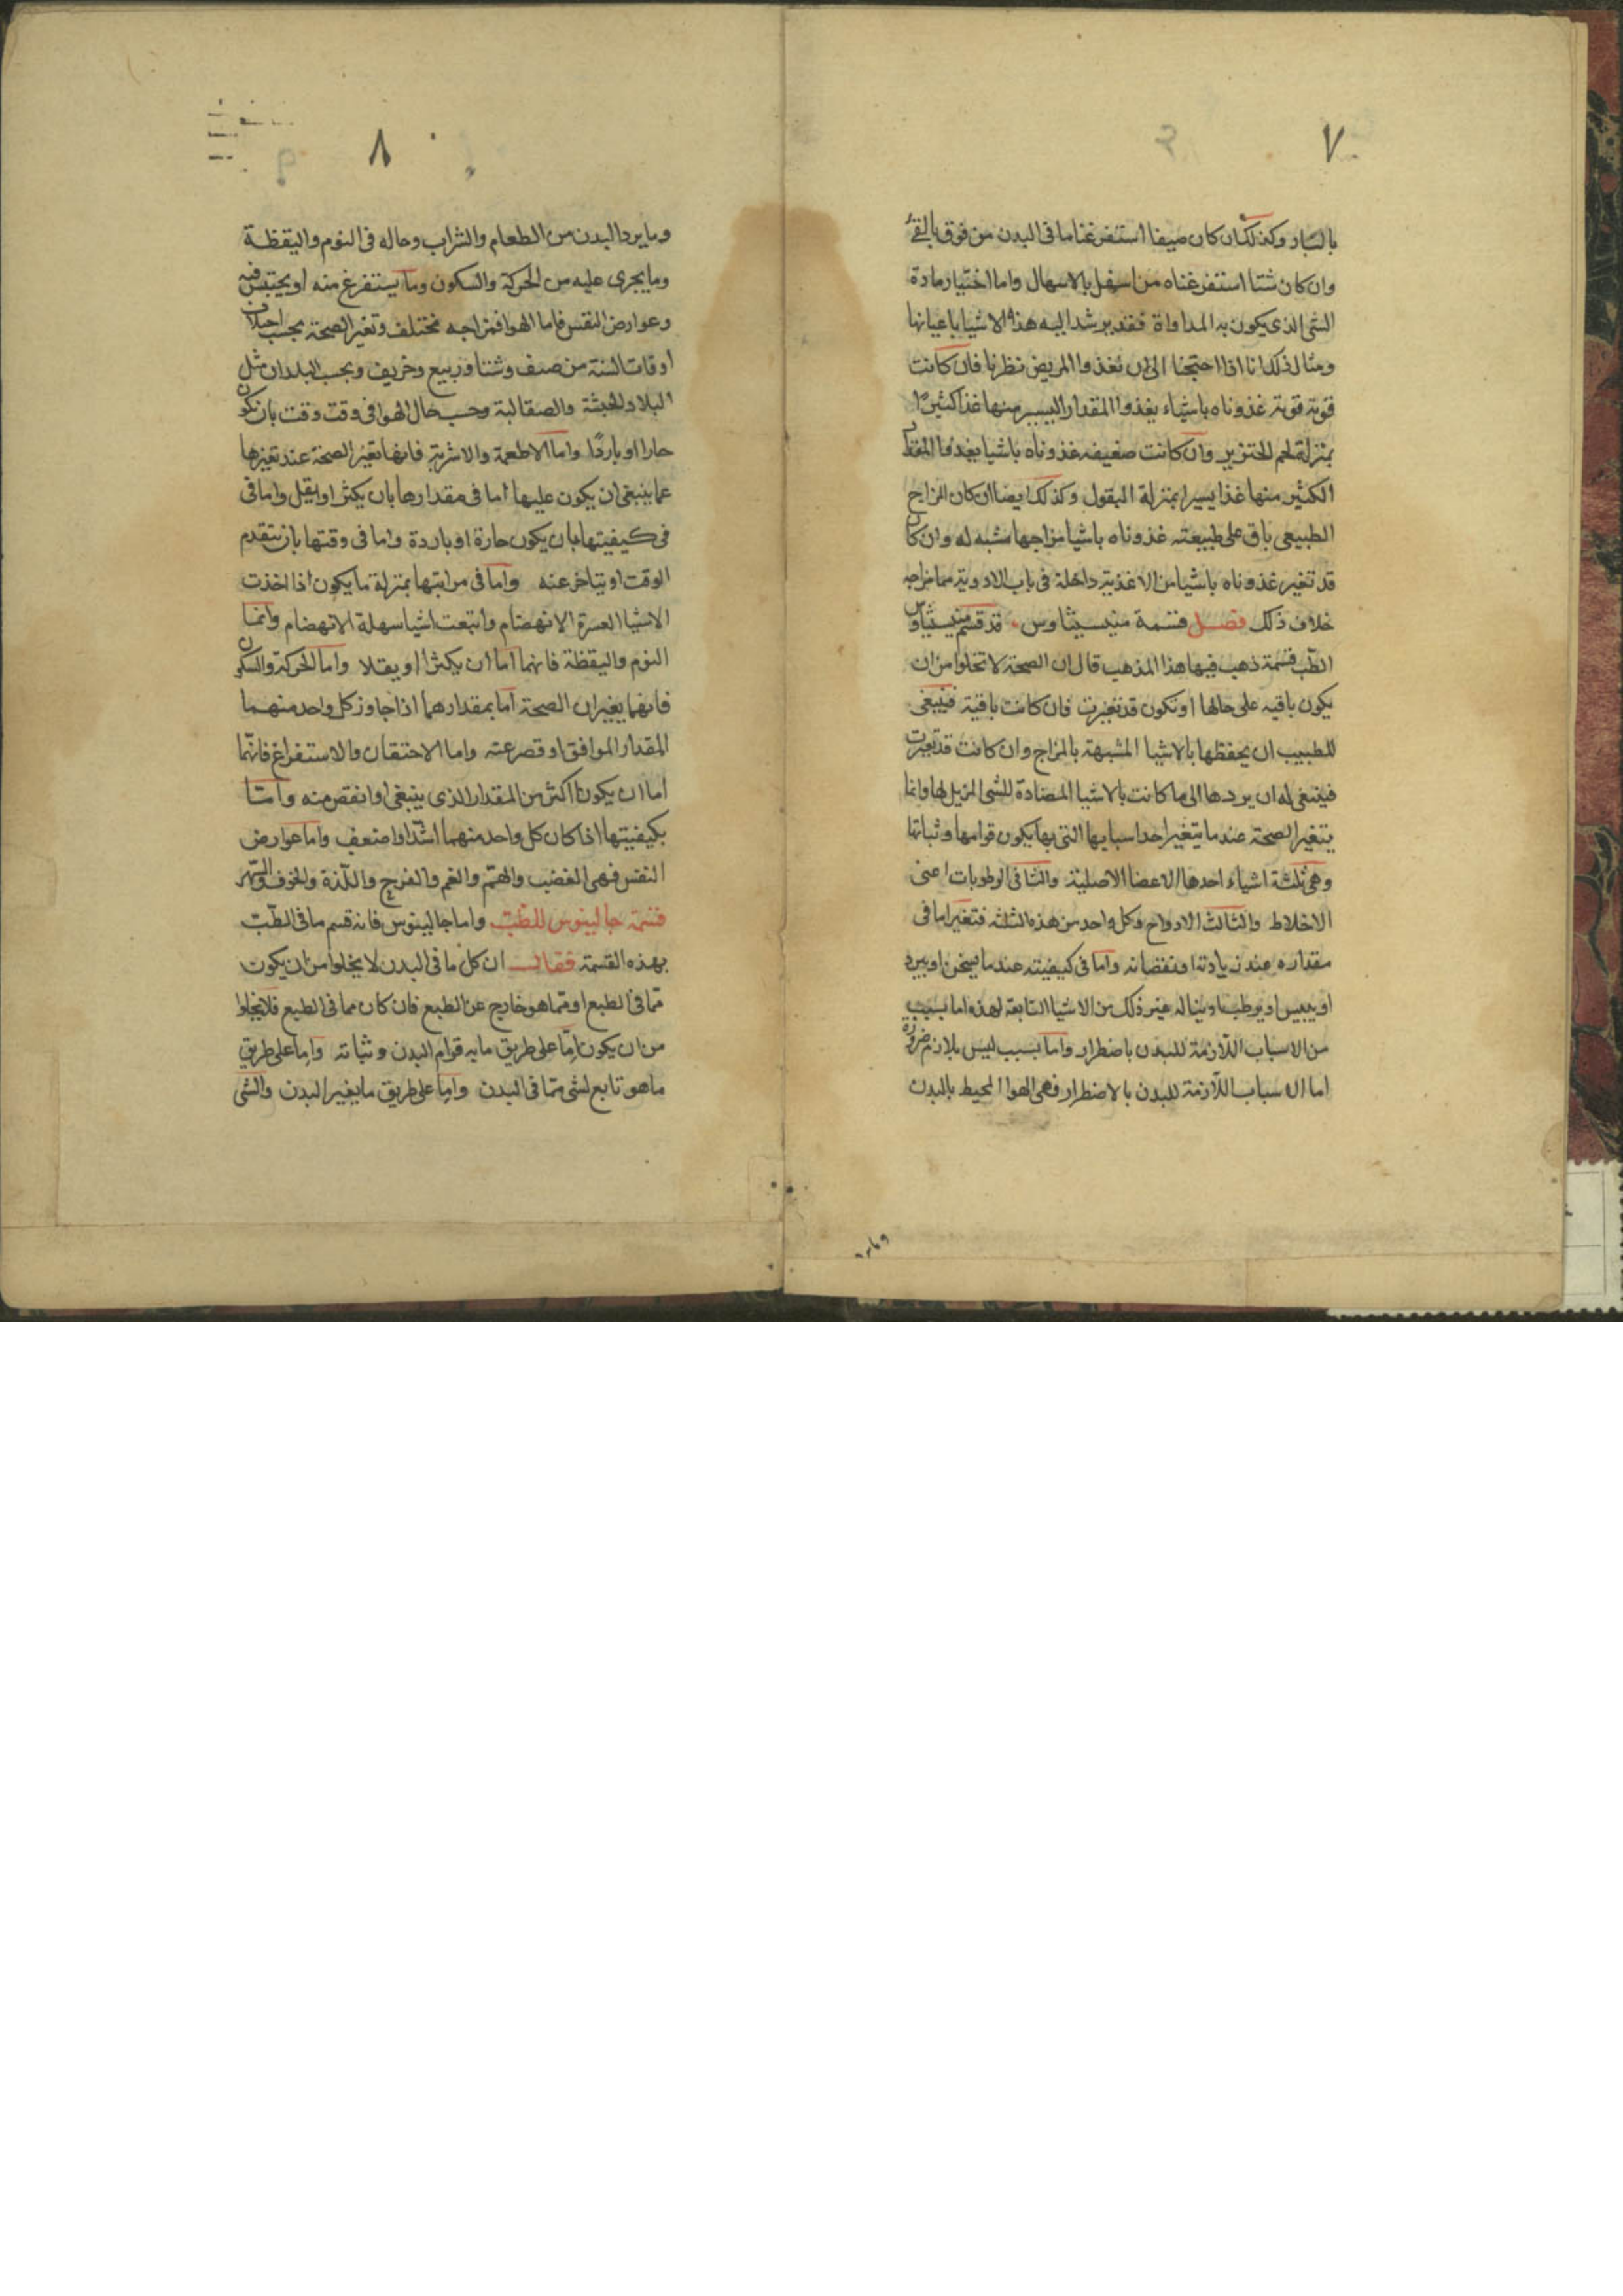 ٧
بالشار وكذلك ان كان صيفا استفرغنا ما فى البدن من فوق بالقئ
وان كان شتا استفرغناه من اسفل بالاسهال واما اختيار مادة
الشى الذى يكون به المداواة فقد يرشد اليه هذه الاشيا باعيانها
ومثال ذلك انا اذا احتجنا الى ان نغذوا المريض نظرنا فان كانت
قوته قوية غذوناه باشياء يغذوا المقدار اليسير منها غذا كثيرًا
بمنزلة لحم الخنزير وان كانت ضعيفه غذوناه باشيا يغذوا المقدار
الكثير منها غذا يسيرا بمنزلة البقول وكذلك ايضا ان كان المزاج
الطبيعى باق على طبيعته غذوناه باشيا مزاجها مشبه له وان كان
قد تغير غذوناه باشيا من الاغذية داخلة فى باب الادوية مما مزاجه
خلاف ذلك فصل قسمة منيسيثاوس قد قسم منيسيثاوس
الطب قسمة ذهب فيها هذا المذهب قال ان الصحة لا تخلوا من ان
يكون باقيه على حالها او تكون قد تغيرت فان كانت باقية فينبغى
للطبيب ان يحفظها بالاشيا المشبهة بالمزاج وان كانت قد تغيرت
فينبغى له ان يردها الى ما كانت بالاشيا المضادة للشى المزيل لها وانما
يتغير الصحة عندما يتغير احد اسبابها التى بها يكون قوامها وثباتها
وهى ثلثة اشياء احدها الاعضا الاصلية والثانى الرطوبات اعنى
الاخلاط والثالث الارواح وكل واحد من هذه الثلثه فتغير اما فى
مقداره عند زيادته او نقصانه واما فى كيفيته عندما يسخن او يبرد
او ييبس او يرطب او يناله غير ذلك من الاشيا التابعة لهذه اما بسبب
من الاسباب اللازمة للبدن باضطرار واما بسبب ليس بلازم ضرورة
اما الاسباب اللازمة للبدن بالاضطرار فهى الهوا المحيط بالبدن
وما يرد
٨
وما يرد البدن من الطعام والشراب وحاله فى النوم واليقظة
وما يجرى عليه من الحركة والسكون وما يستفرغ منه او يحتبس فيه
وعوارض النفس فاما الهوا فمزاجه مختلف وتغير الصحة بحسب اختلاف
اوقات السنة من صيف وشتا وربيع وخريف وبحسب البلدان مثل
البلاد الحبشة والصقالبة وحسب حال الهوا فى وقت وقت بان يكون
حارا او باردًا واما الاطعمة والاشربة فانها تغير الصحة عند تغيرها
عما ينبغى ان يكون عليها اما فى مقدارها بان يكثر او يقل واما فى
فى كيفيتها بان يكون حارة او باردة واما فى وقتها بان يتقدم
الوقت او يتاخر عنه واما فى مراتبها بمنزلة ما يكون اذا اخذت
الاشيا العسرة الانهضام واتبعت اشيا سهلة الانهضام وانما
النوم واليقظة فانهما اما ان يكثرا او يقلا واما الحركة والسكون
فانهما يغيران الصحة اما بمقدارهما اذا جاوز كل واحد منهما
المقدار الموافق او قصر عنه واما الاحتقان والاستفراغ فانهما
اما ان يكونا اكثر من المقدار الذى ينبغى او انقص منه واما
بكيفيتها اذا كان كل واحد منهما اشد او اضعف واما عوارض
النفس فهى الغضب والهم والغم والفرح واللذة والخوف والسهر
قسمة جالينوس للطب واما جالينوس فانه قسم ما فى الطب
بهذه القسمة فقال ان كل ما فى البدن لا يخلوا من ان يكون
مما فى الطبع او مما هو خارج عن الطبع فان كان مما فى الطبع فلا يخلوا
من ان يكون اما على طريق ما به قوام البدن وثباته واما على طريق
ما هو تابع لشى مما فى البدن واما على طريق ما يغير البدن والشى